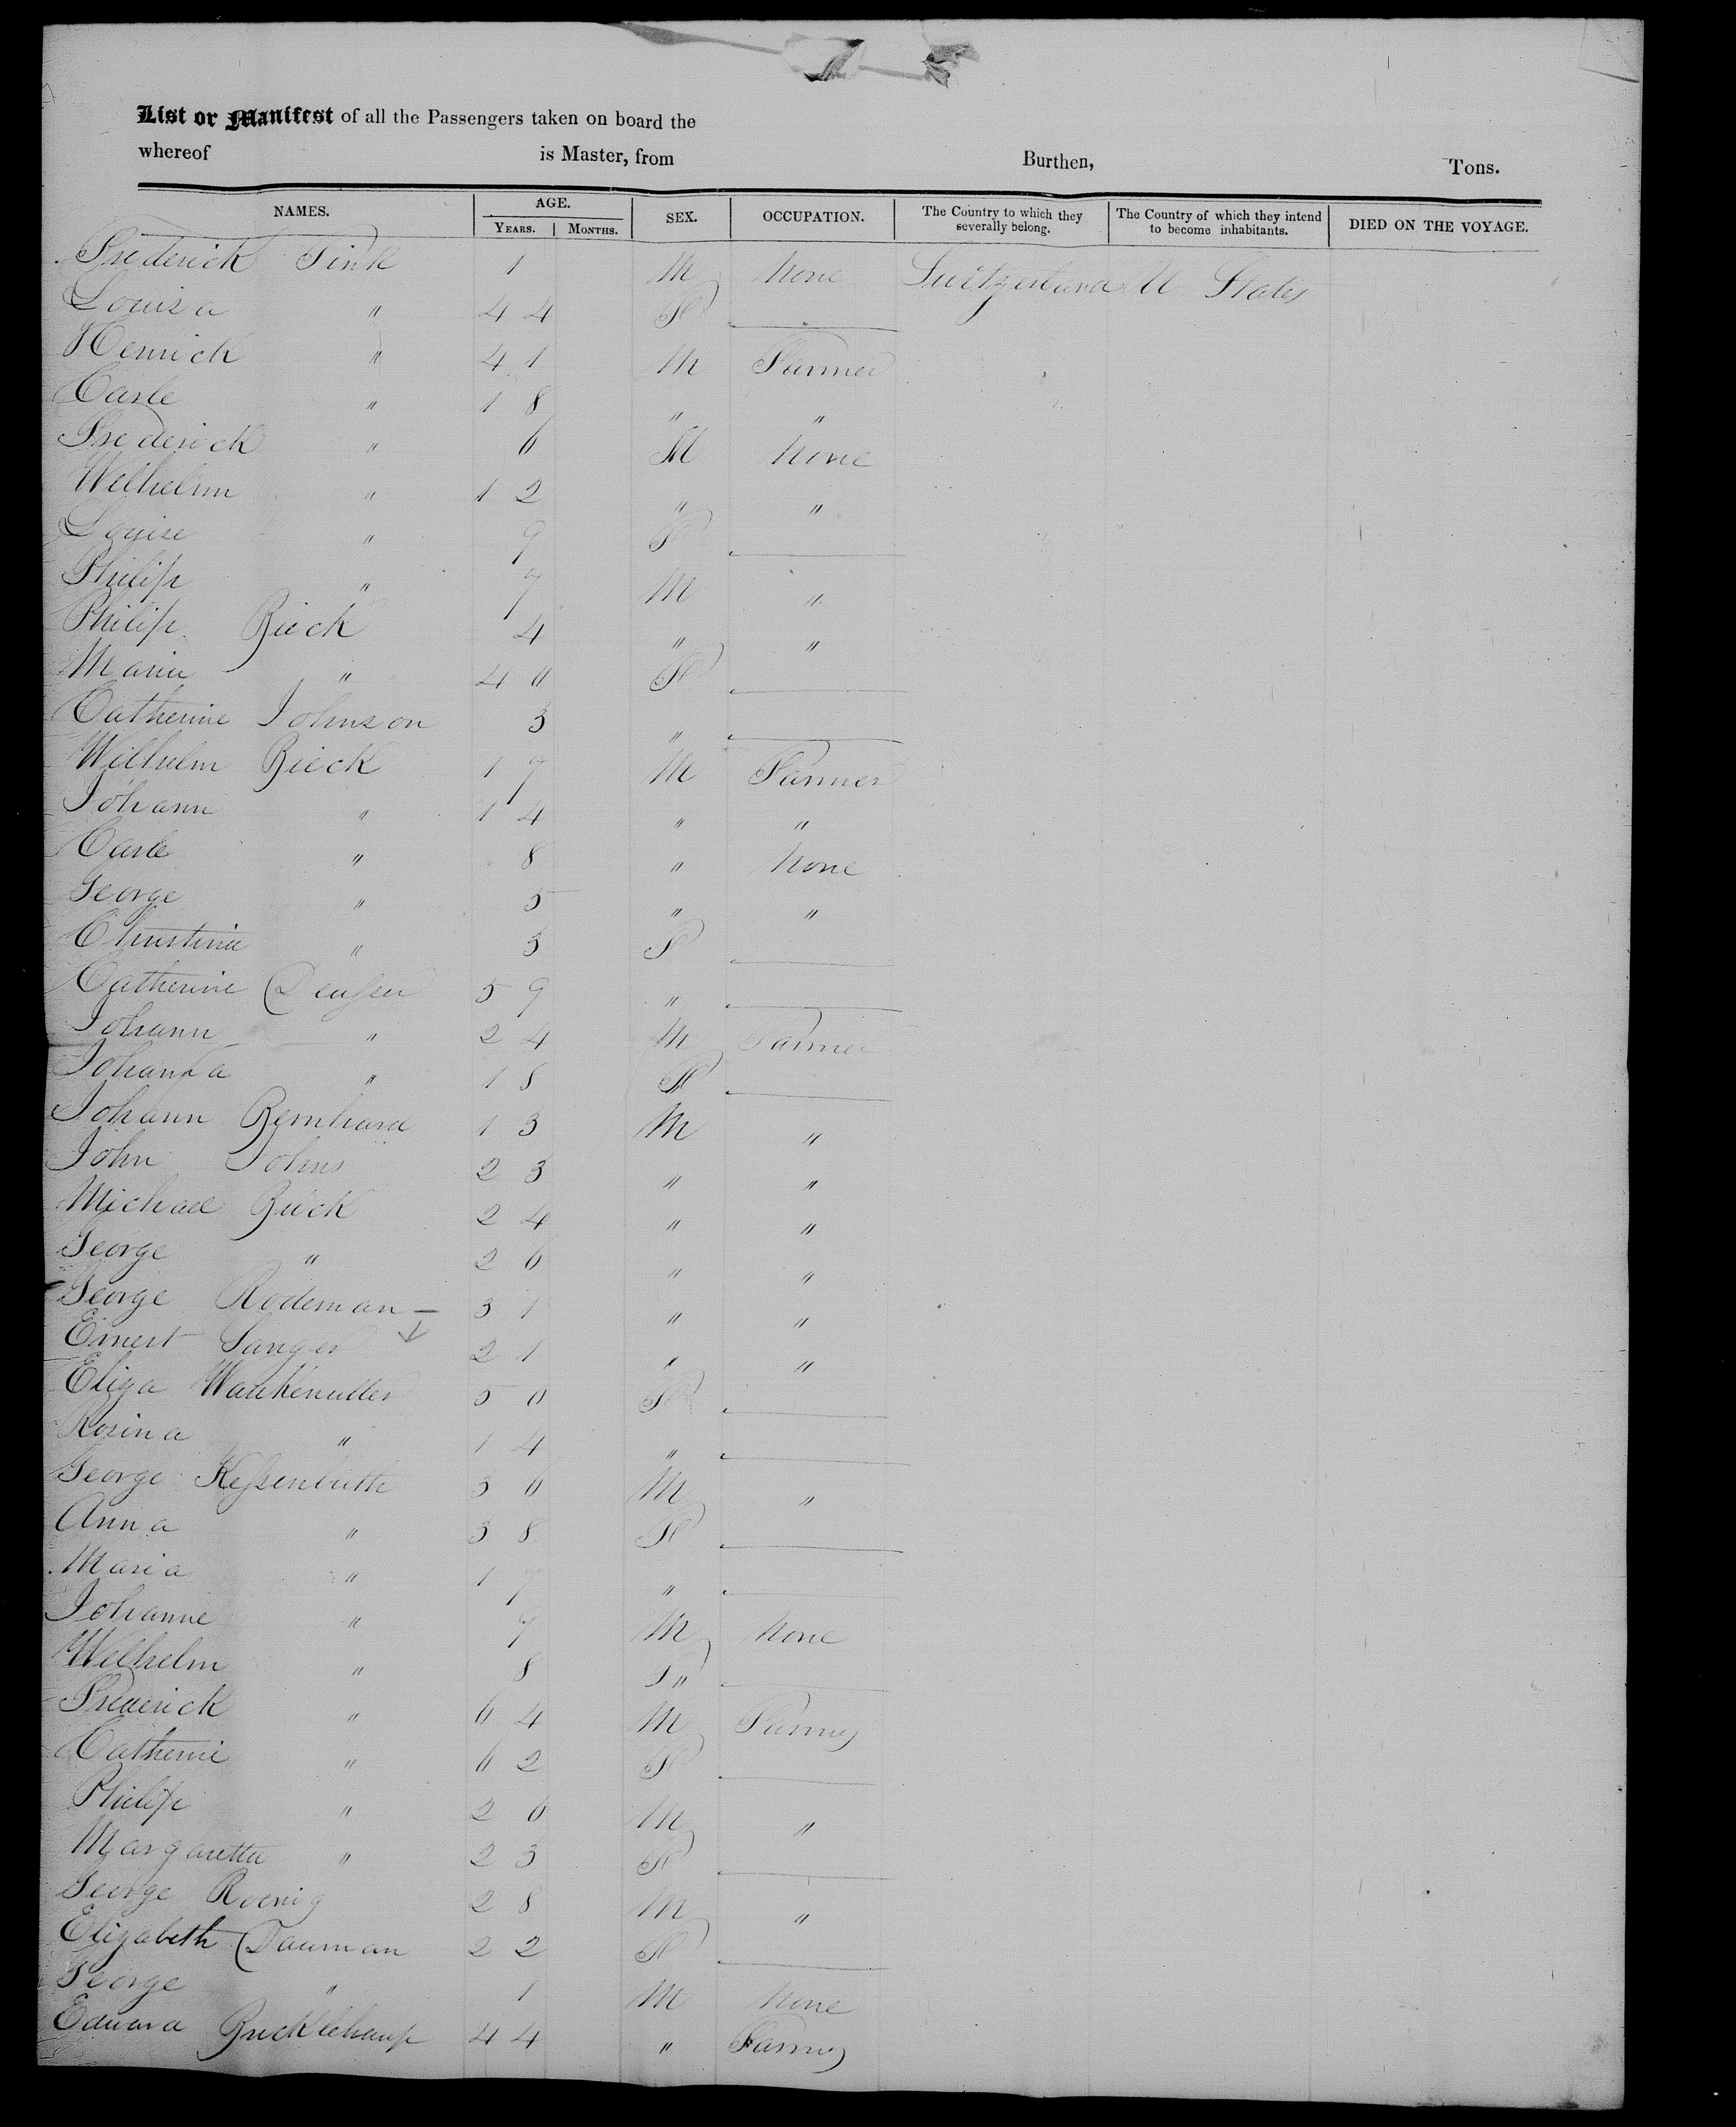 List or Manifest of all the Passengers taken on board the
whereof is Master, from Burthen, Tons.
NAMES. AGE. SEX. OCCUPATION. The Country to which they severally belong. The Country of which they intend to become inhabitants. DIED ON THE VOYAGE.
YEARS. MONTHS.
Frederick Fink 1 M None Switzerland U States
Louisa " 44 F
Henrick " 41 M Farmer
Carle " 18 " "
Frederick " 6 M None
Welhelm " 12 " "
Louise " 9 F
Philip " 7 M "
Philip Rieck 4 " "
Maria " 40 F
Catherine Johnson 3 "
Wilhelm Rieck 17 M Farmer
Johann " 14 " "
Carle " 8 " None
George " 5 " "
Christina " 3 F
Catherine 59 "
Johann " 24 M Farmer
Johanna " 18 F
Johann Bernhard 13 M "
John Johns 23 " "
Michael Rieck 24 " "
George " 26 " "
George Rodeman 31 " "
Ernest Langer 21 " "
Eliza 50 F
Rosina " 14 "
George 30 M "
Anna " 38 F
Maria " 19 "
Johanne " 9 M None
Welhelm " 8 F "
Frederick " 64 M Farmer
Catherine " 62 F
Philip " 26 M "
Margaretta " 23 F
George Roenig 28 M "
Elizabeth Dauman 22 F
George " 1 M None
Edward 44 " Farmer